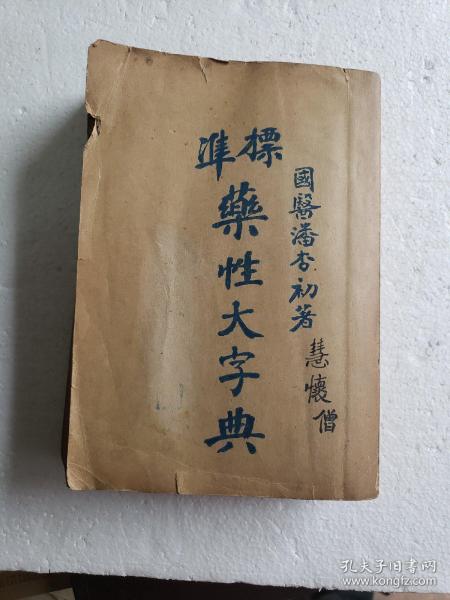 標準
藥性大字典
國醫潘杏初著
慧懷僧
孔夫子旧书网
www.kongfz.com